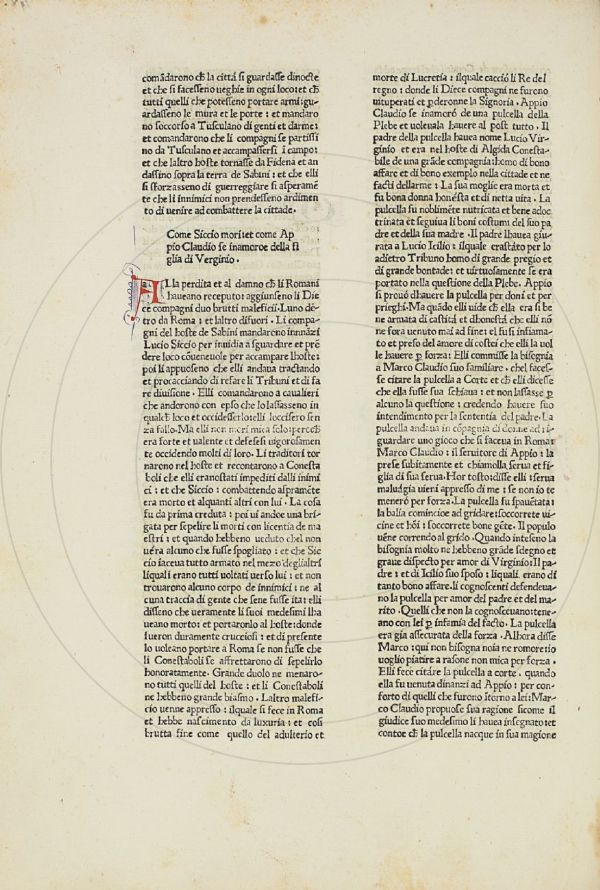 comãdarono ch̃ la cittá si guardasse dinocte
et che si facesseno ueghie in ogni loco: et ch̃
tutti quelli che potesseno portare armi: gu-
ardasseno le mura et le porte: et mandaro
no soccorso a Tusculano di genti et darme:
et comandarono che li compagni se partissi
no da Tusculano et accampassersi ĩ campo:
et che laltro hoste tornasse da Fidena et an
dassino sopra la terra de Sabini: et che elli
si sforzasseno di guerreggiare sí asperamẽ
te che li innimici non prendesseno ardimen
to di uenire ad combattere la cittade.
Come Siccio mori: et come Ap
pio Claudio se inamoroe della fi
glia di Verginio.
ALla perdita et al damno ch̃ li Romani
haueano receputo: aggiunseno li Die
ce compagni duo brutti maleficii. Luno dẽ
tro da Roma: et laltro difuori. Li compa-
gni del hoste de Sabini mandaro innãzi
Lucio Siccio per innidia a sguardare et prẽ
dere loco cõueneuole per accampare lhoste:
poi li appuoseno che elli andaua tractando
et procacciando di refare li Tribuni et di fa
re diuisione. Elli comandarono a caualieri
che anderono con epso che lo lassasseno in
qualch̃ loco et occidesserlo: elli loccisero sen
za fallo. Ma elli non mori mica solo: perch̃
era forte et ualente et defesesi uigorosamen
te occidendo molti di loro. Li traditori tor
narono nel hoste et recontarono a Conesta
boli che elli eranostati impediti dalli inimi
ci: et che Siccio: combattendo aspramẽte
era morto et alquanti altri con lui. La cosa
fu da prima creduta: poi ui andoe una bri-
gata per sepelire li morti con licentia de ma
estri: et quando hebbeno ueduto chel non
uéra alcuno che fusse spogliato: et che Sic
cio iaceua tutto armato nel mezo deglialtri
liquali erano tutti uoltati uerso lui: et non
trouarono alcuno corpo de innimici: ne al
cuna traccia di gente che sene fusse ita: elli
disseno che ueramente li suoi medesimi lha
ueano morto: et portaronlo al hoste: donde
fueron duramente crucciosi: et di presente
lo uoleano portare a Roma se non fusse che
li Conestaboli se affrettarono di sepelirlo
honoratamente. Grande duolo ne menaro-
no tutti quelli del hoste: et li Conestaboli
ne hebbeno grande biasmo. Laltro malefi-
cio uenne appresso: ilquale si fece in Roma
et hebbe nascimento da luxuria: et cosí
brutta fine come quello del adulterio et
morte di Lucretia: ilquale cacció li Re del
regno: donde li Diece compagni ne furono
uituperati et ꝑderonne la Signoria. Appio
Claudio se inamoró de una pulcella della
Plebe et uoleuala hauere al post tutto. Il
padre della pulcella hauea nome Lucio Vir-
ginio et era nel hoste di Algida Conesta-
bile de una grãde compagnia: homo di bono
affare et di bono exemplo nella cittade et ne
facti dellarme: La sua moglie era morta et
fu bona donna honesta et di netta uita. La
pulcella fu nobilmẽte nutricata et bene adoc
trinata et seguiua li boni costumi del suo pa
dre et della sua madre. Il padre lhauea giu-
rata a Lucio Icilio: ilquale erastato per lo
adietro Tribuno homo di grande pregio et
di grande bontade: et uirtuosamente se era
portato nella questione della Plebe. Appio
si prouó dhauere la pulcella per doni et per
prieghi. Ma quãdo elli uide ch̃ ella era sí be
ne armata di castitá et dhonestá che elli nõ
ne fora uenuto mai ad fine: el fu sí infiama-
to et preso del amore di costei che elli la uol
le hauere ꝑ forza: Elli commisse la bisegnia
a Marco Claudio suo familiare. chel faces-
se citare la pulcella a Corte et ch̃ elli dicesse
che ella fusse sua schiaua: et non lassasse ꝑ
alcuno la questione: credendo hauere suo
intendimento per la sententia del padre. La
pulcella andaua in cõpagnia di donne ad ri-
guardare uno gioco che si faceua in Roma:
Marco Claudio: il seruitore di Appio: la
prese subitamente et chiamolla serua et fi-
glia di sua serua. Hor tosto: disse elli: serua
maluagia uieni appresso di me: se non io te
meneró per forza. La pulcella fu spauẽtata:
la balia comincioe ad gridare: soccorrete ui-
cine et hõi: soccorrete bone gẽte. Il populo
uẽne correndo al grido. Quando inteseno la
bisognia molto ne hebbeno grãde sdegno et
graue dispecto per amor di Virginio: Il pa-
dre: et di Icilio suo sposo: liquali erano di
tanto bono affare. li cognoscenti defendeua-
no la pulcella per amor del padre et del ma-
rito. Quelli che non la cognosceuano: tene-
ano con lei ꝑ infamia del facto. La pulcella
era giá assecurata della forza. Alhora disse
Marco: qui non bisogna noia ne romore: io
uoglio piatire a rasone non mica per forza.
Elli fece citare la pulcella a corte. quando
ella fu uenuta dinanzi ad Appio: per con-
forto di quelli che furono ĩtorno a lei: Mar-
co Claudio propuose sua ragione sicome il
giudice suo medesimo li hauea insegnato: et
contoe ch̃ la pulcella nacque in sua magione